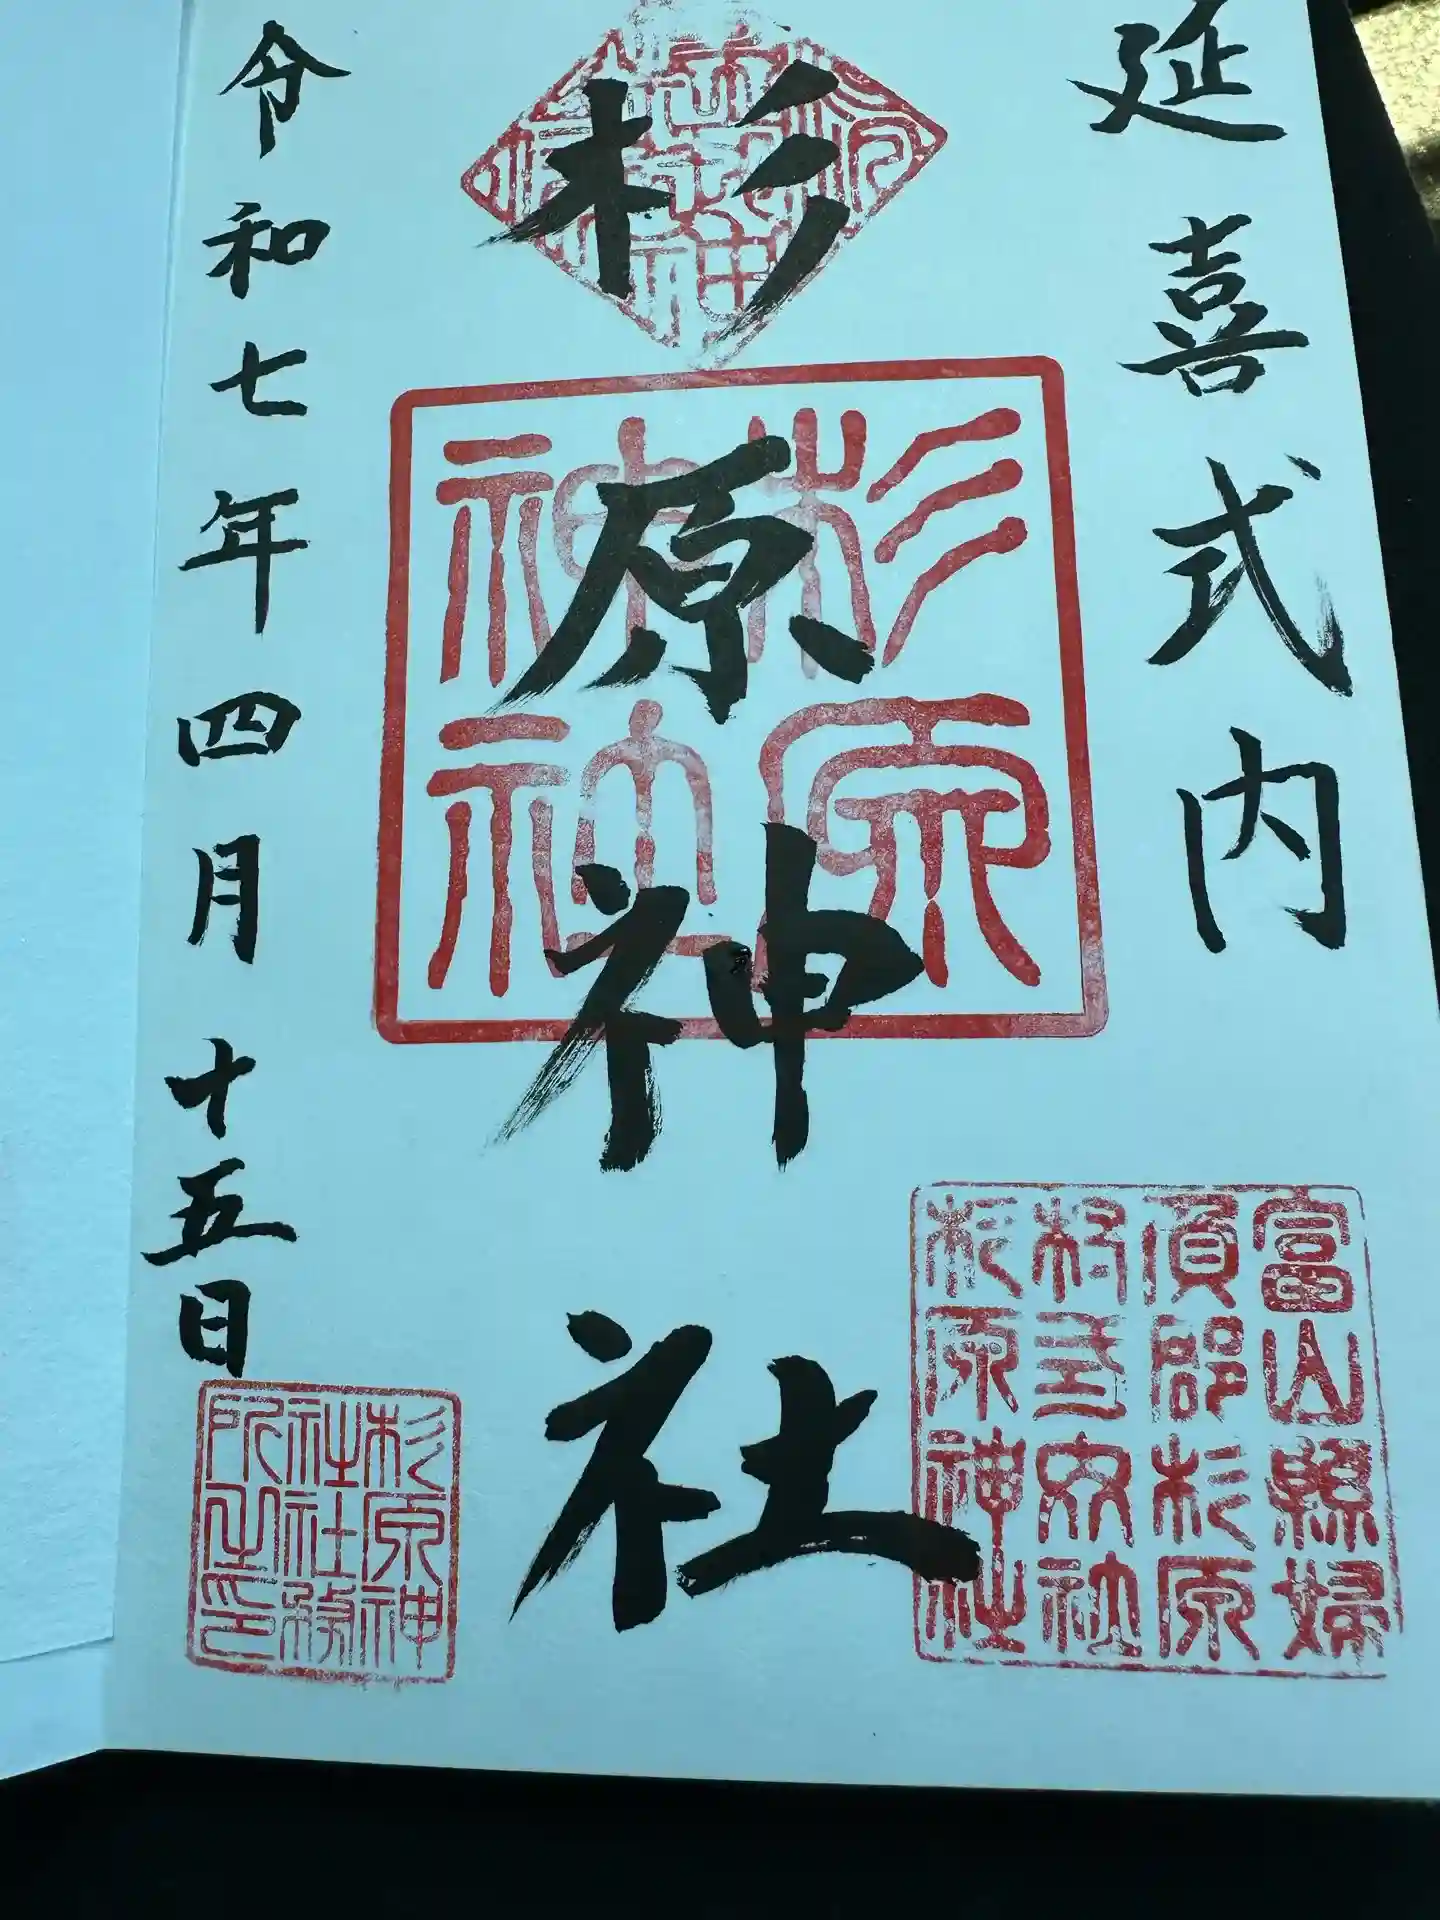 延喜式内
杉原神社
令和七年四月十五日
杉原
神社
富山縣婦
負郡杉原
村式内社
杉原神社
杉原神
社社務
所之印